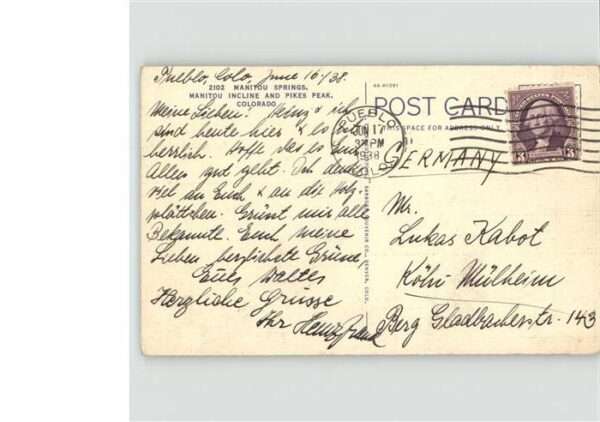 Pueblo, Colo, June 16/38.
2102 MANITOU SPRINGS,
MANITOU INCLINE AND PIKES PEAK,
COLORADO
Meine Lieben! Heinz & ich
sind heute hier & es ist
herrlich. Hoffe das es euch
Allen gut geht. Ich denke
viel an Euch & an die Holz-
plättchen. Grüsst mir alle
Bekannte. Euch meine
Lieben herzlichste Grüsse,
Eure Walter
Herzliche Grüsse
Ihr Heinz Frank
POST CARD
THIS SPACE FOR ADDRESS ONLY
PUEBLO
JUN 17
3 PM
1938
COLO.
3 3
GERMANY
Mr.
Lukas Kabot
Köln Mülheim
Berg Gladbacherstr. 143